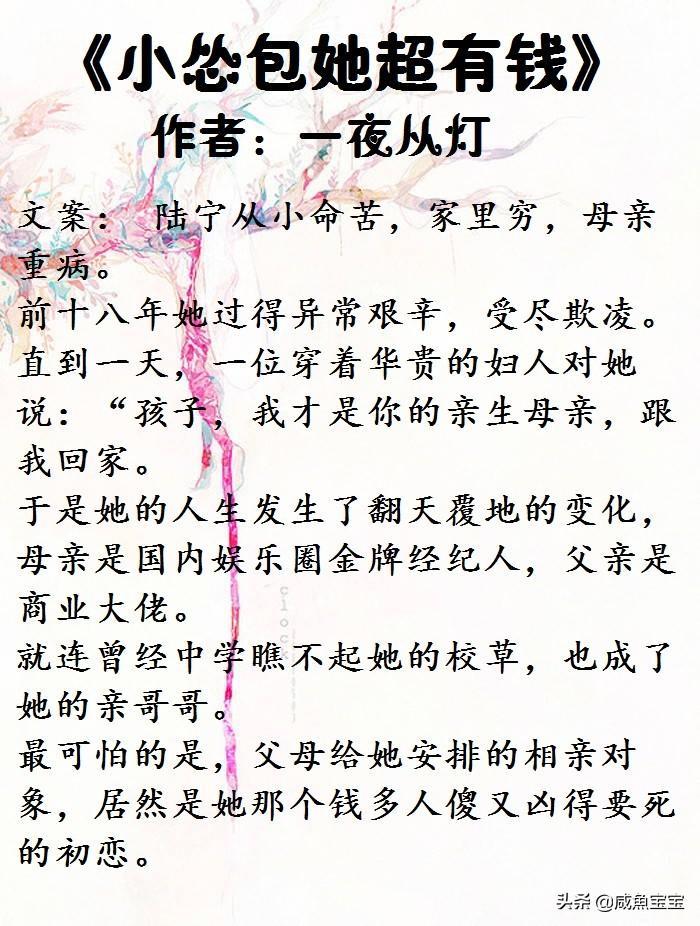 《小怂包她超有钱》
作者：一夜从灯
文案： 陆宁从小命苦，家里穷，母亲
重病。
前十八年她过得异常艰辛，受尽欺凌。
直到一天，一位穿着华贵的妇人对她
说：“孩子，我才是你的亲生母亲，跟
我回家。
于是她的人生发生了翻天覆地的变化，
母亲是国内娱乐圈金牌经纪人，父亲是
商业大佬。
就连曾经中学瞧不起她的校草，也成了
她的亲哥哥。
最可怕的是，父母给她安排的相亲对
象，居然是她那个钱多人傻又凶得要死
的初恋。
clock
头条 @咸魚宝宝